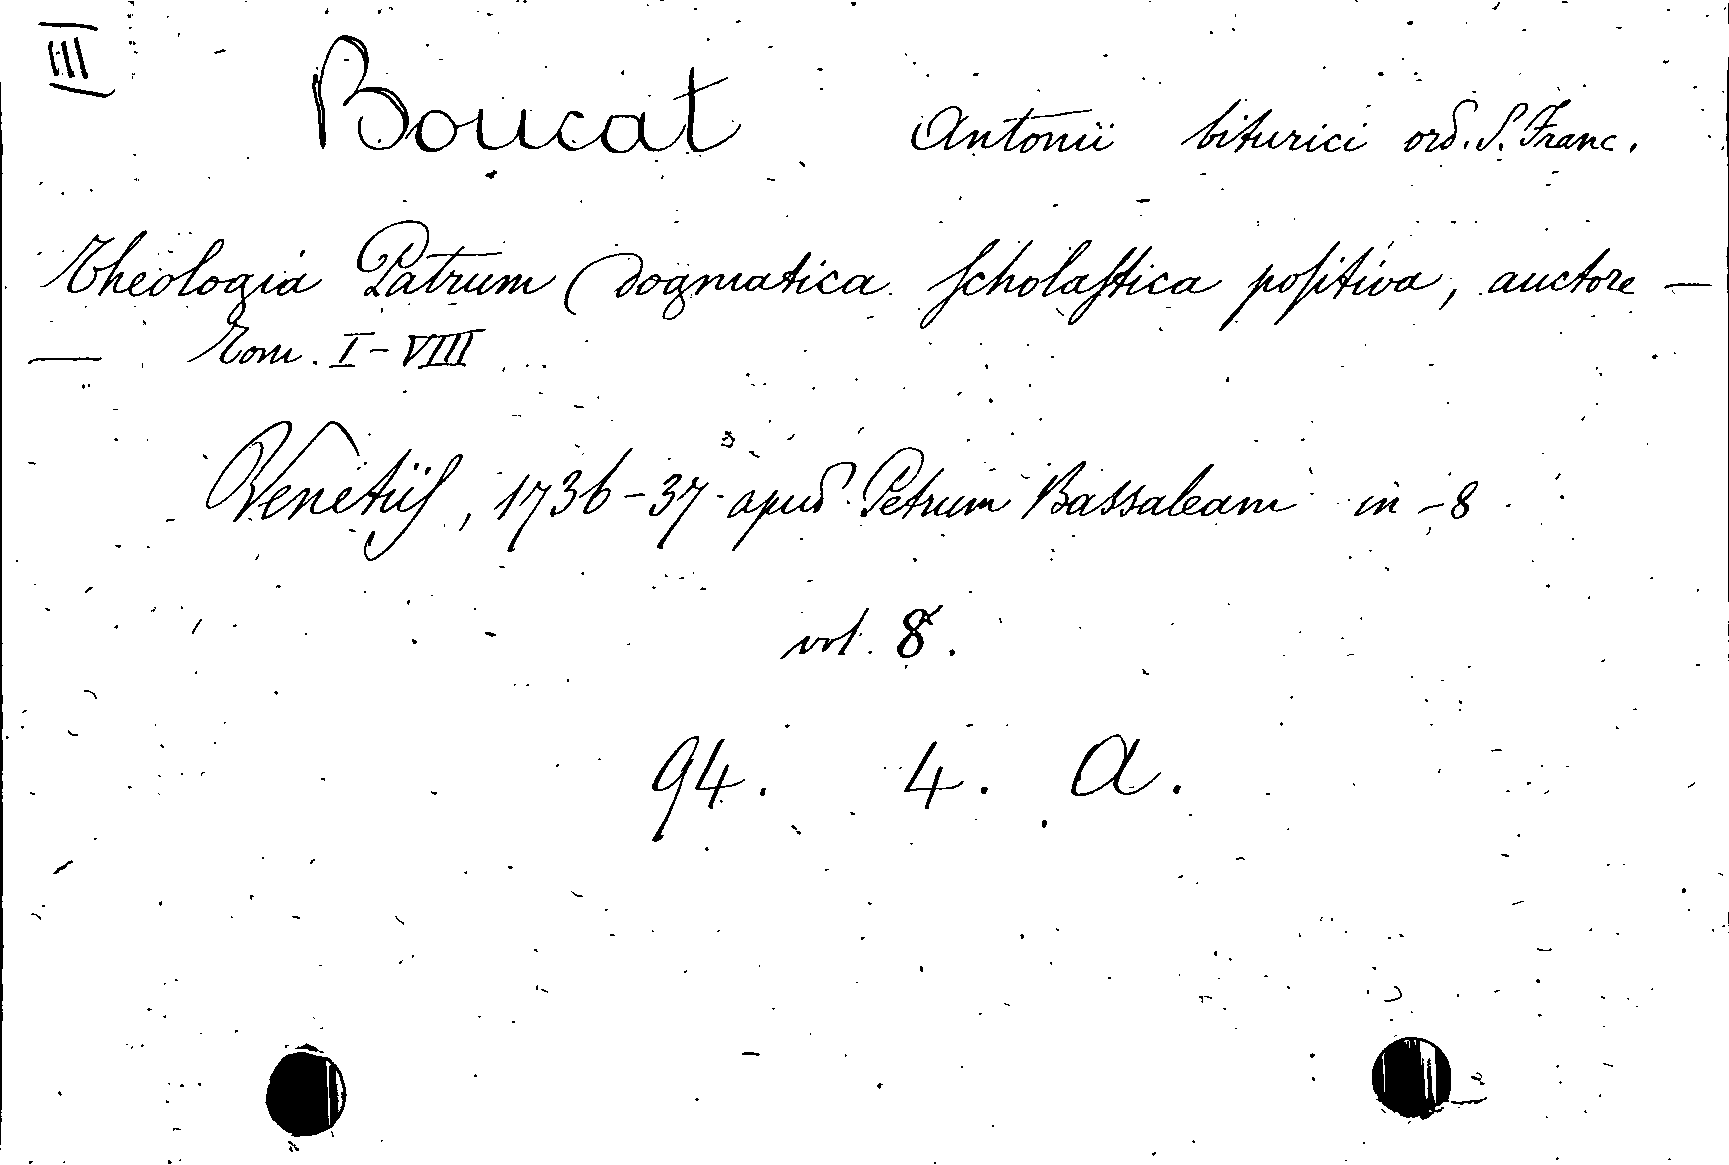 III
Boucat Antonii biturici ord. S. Franc.
Theologia Patrum dogmatica scholastica positiva, auctore —
— Tom. I-VIII
Venetijs, 1736-37 apud Petrum Bassaleam in-8
vol. 8.
94. 4. A.